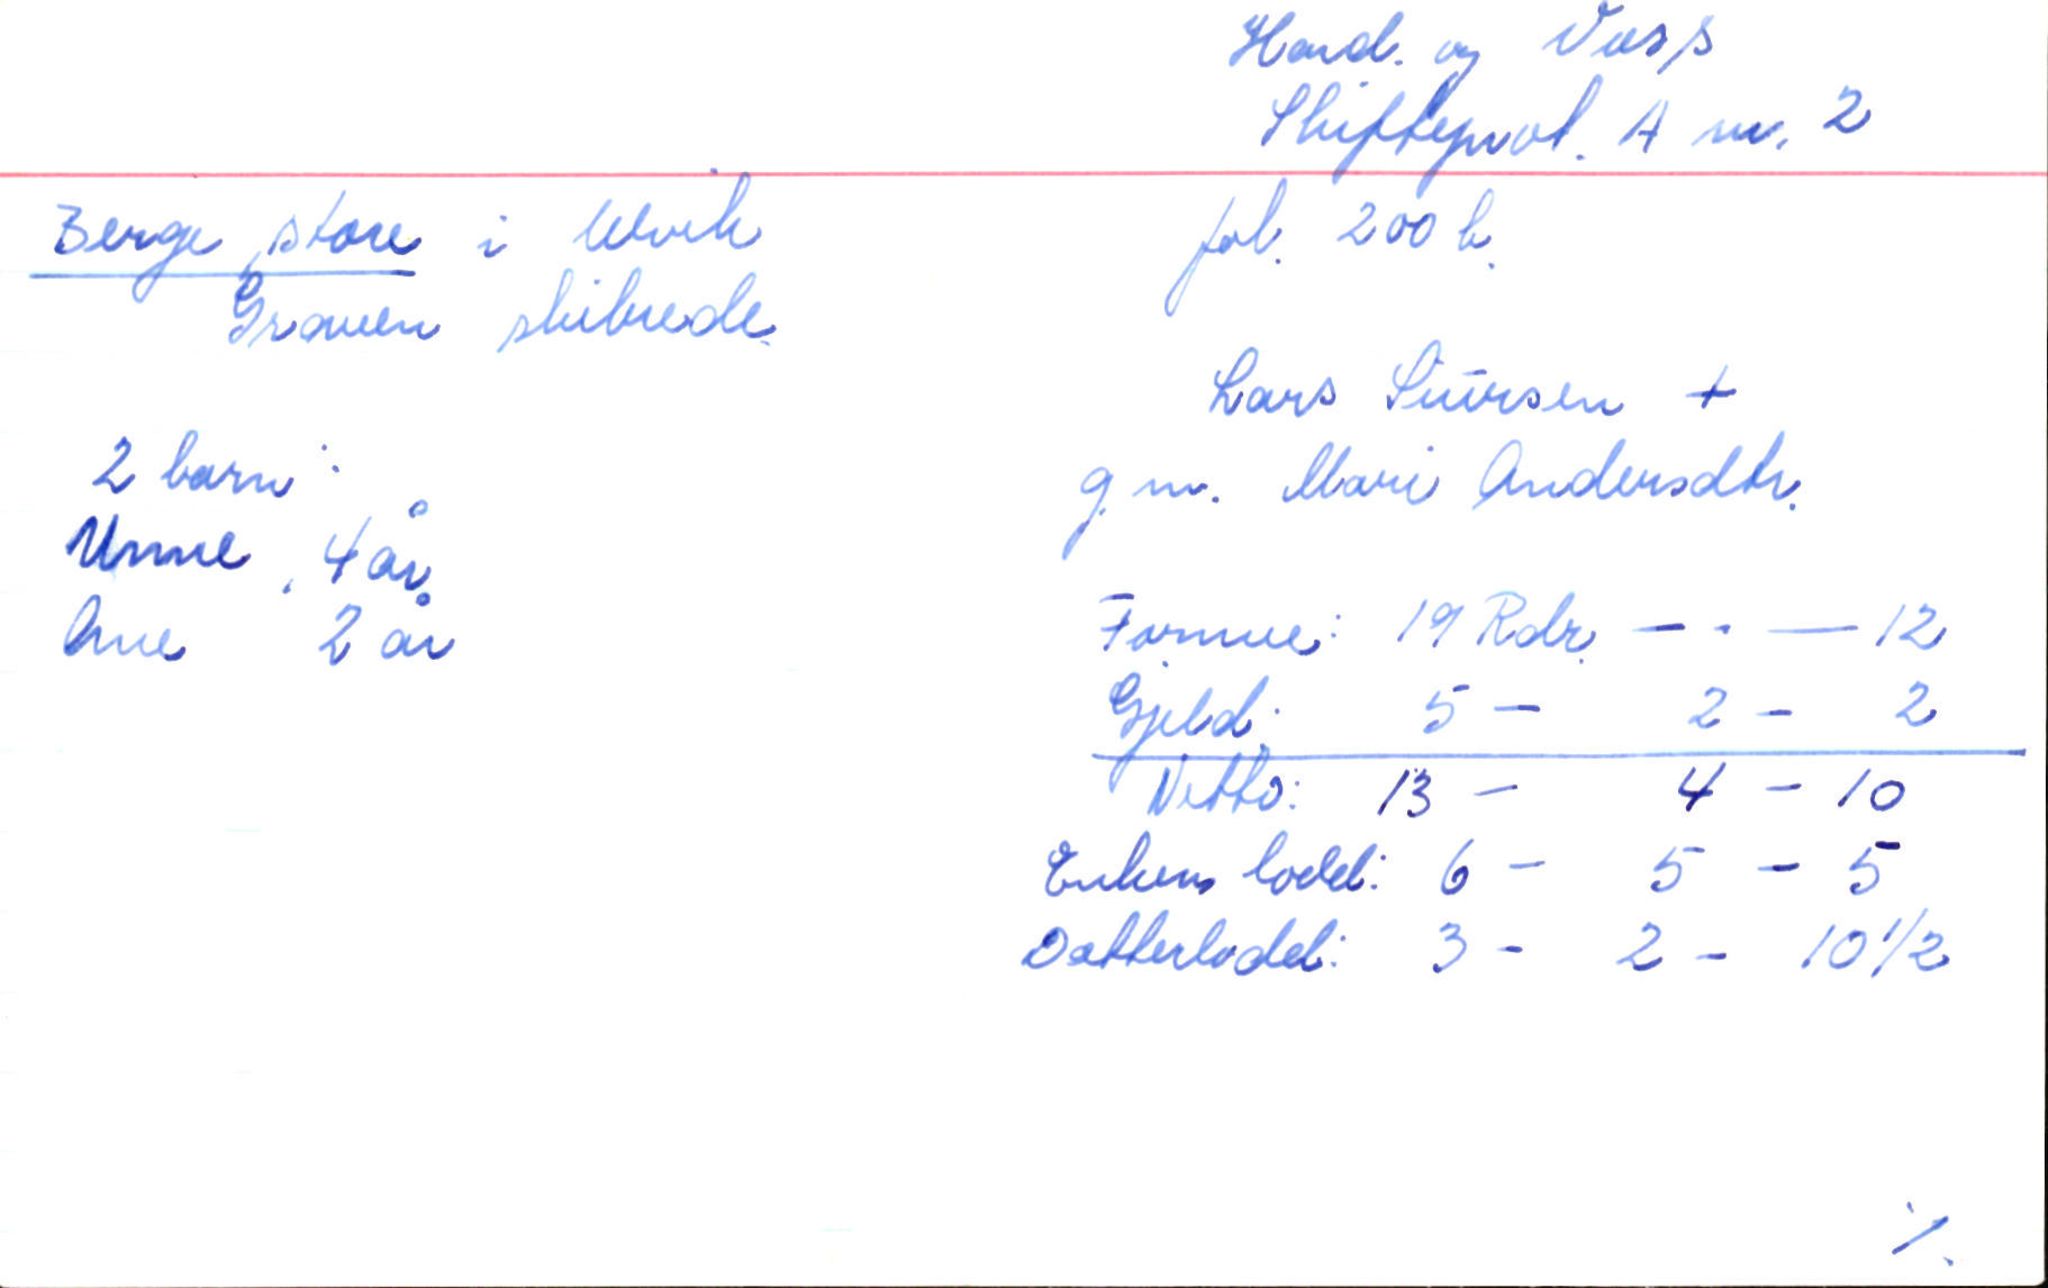 Hard. og Voss
Skifteprot. A nr. 2
Berge, store i Ulvik
fol. 200 b.
Graven skibrede.
Lars Siursen +
g.m. Mari Andersdtr.
2 barn:
Unne, 4 år
Ane 2 år
Formue: 19 Rdr. — . — 12
Gjeld: 5 — 2 — 2
Netto: 13 — 4 — 10
Enkens lodd: 6 — 5 — 5
Datterlodd: 3 — 2 — 10 1/2
./.